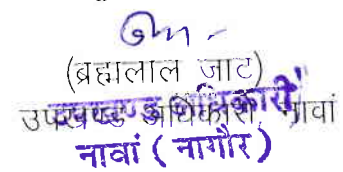 (ब्रह्मलाल जाट)
उपखण्ड अधिकारी, नावां
उपखण्ड अधिकारी
नावां ( नागौर )